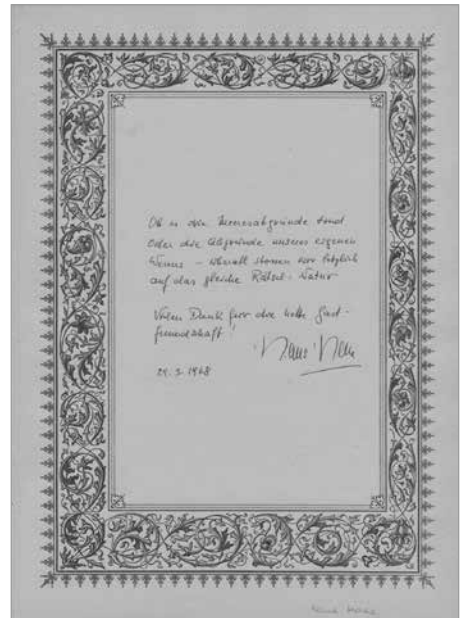 Ob es die Meeresabgründe sind
Oder die Abgründe unseres eigenen
– überall stossen wir letztlich
auf das gleiche Rätsel: Natur
Vielen Dank für die nette Gast-
freundschaft!
Hans Hass
29. 2. 1968
Hans Hass